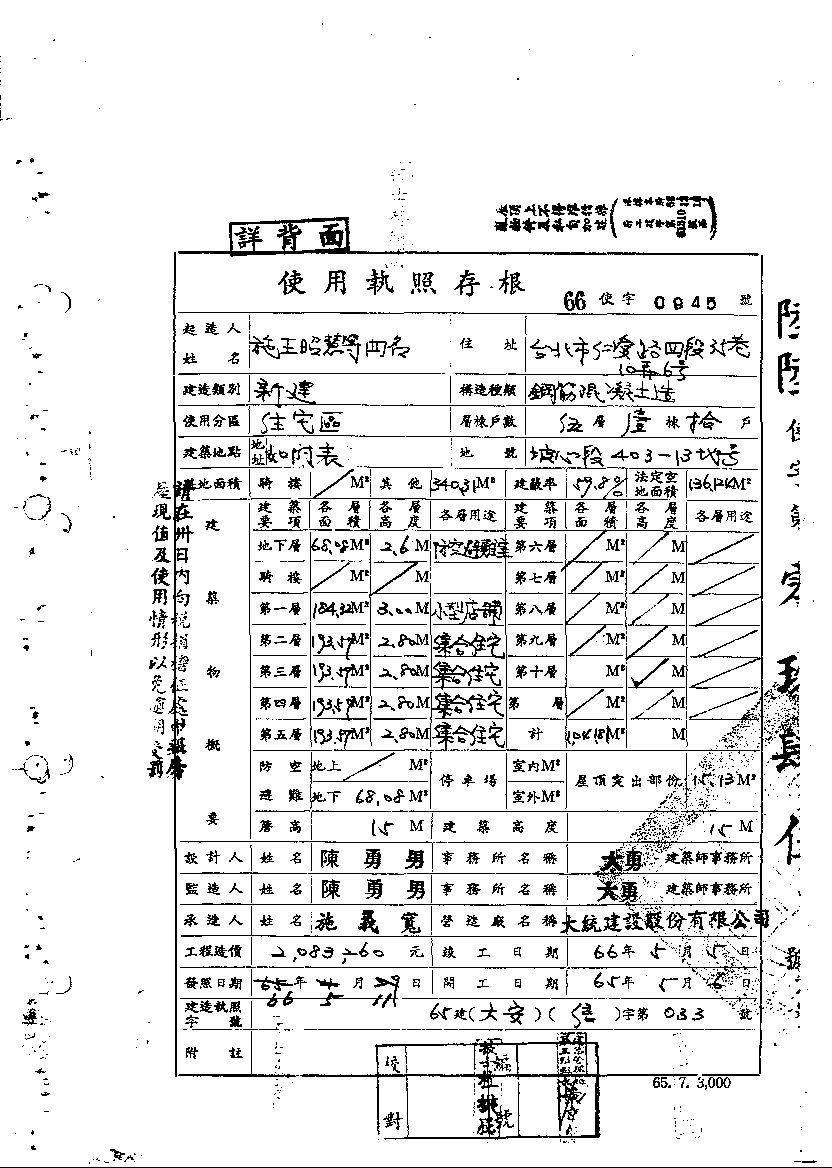 詳背面
使用執照存根
66 使字 0945 號
起造人姓名 施王昭慧等四名 住址 台北市仁愛路四段 巷10弄6号
建造類別 新建 構造種類 鋼筋混凝土造
使用分區 住宅區 層棟戶數 伍層壹棟拾戶
建築地點 地址 如附表 地號 坡心段403-13地号
基地面積 騎樓 / M² 其他 340.31M² 建蔽率 57.8% 法定空地面積 136.12M²
建築物概要
建築要項 各層面積 各層高度 各層用途 建築要項 各層面積 各層高度 各層用途
地下層 68.08M² 2.6M 防空避難室 第六層 / M² / M /
騎樓 / M² / M 第七層 / M² / M /
第一層 184.32M² 3.00M 小型店舖 第八層 / M² / M /
第二層 193.57M² 2.80M 集合住宅 第九層 / M² / M /
第三層 193.57M² 2.80M 集合住宅 第十層 M² M /
第四層 193.57M² 2.80M 集合住宅 第 層 / M² / M /
第五層 193.57M² 2.80M 集合住宅 計 M² M
防空避難 地上 / M² 停車場 室內M² 屋頂突出部份 15.13M²
地下 68.08M² 室外M²
簷高 15M 建築高度 15M
設計人 姓名 陳勇男 事務所名稱 大勇 建築師事務所
監造人 姓名 陳勇男 事務所名稱 大勇 建築師事務所
承造人 姓名 施義寬 營造廠名稱 大統建設股份有限公司
工程造價 2,083,260元 竣工日期 66年5月5日
發照日期 65年4月29日 開工日期 65年5月6日
66 5 11
建造執照字號 65建(大安)( )字第033號
附註
校對
編號
65. 7. 3,000
請在卅日內向稅捐稽征處申報房屋現值及使用情形以免